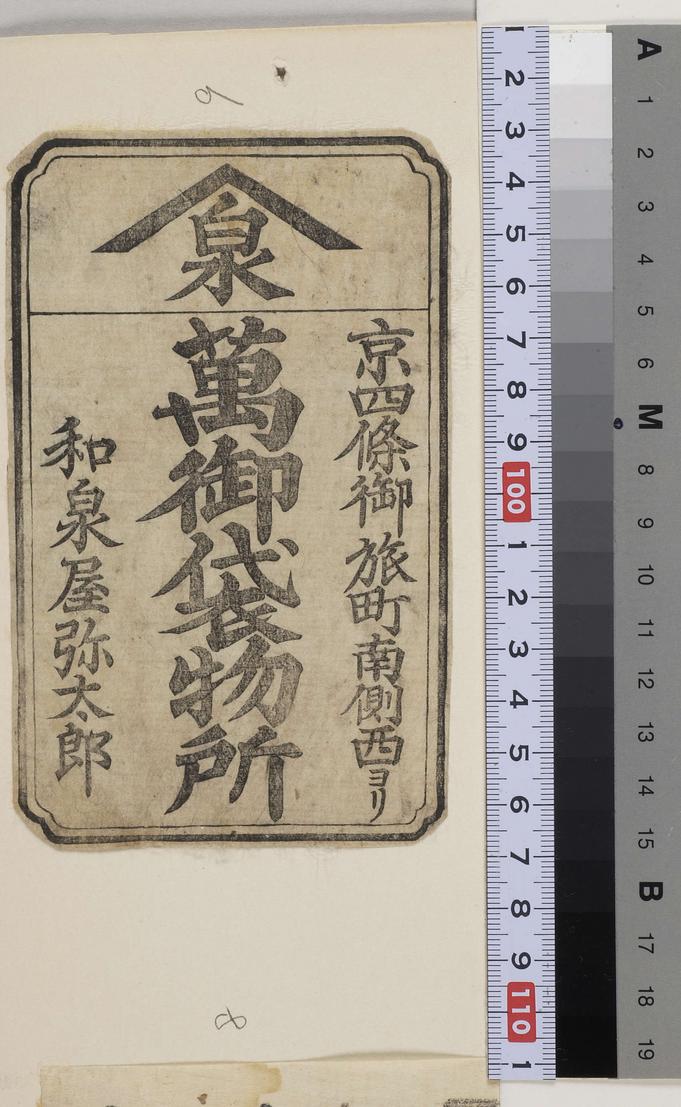 泉
京四條御旅町南側西ヨリ
萬御袋物所
和泉屋弥太郎
6
8
1 2 3 4 5 6 7 8 9 100 1 2 3 4 5 6 7 8 9 110 1
A 1 2 3 4 5 6 M 8 9 10 11 12 13 14 15 B 17 18 19